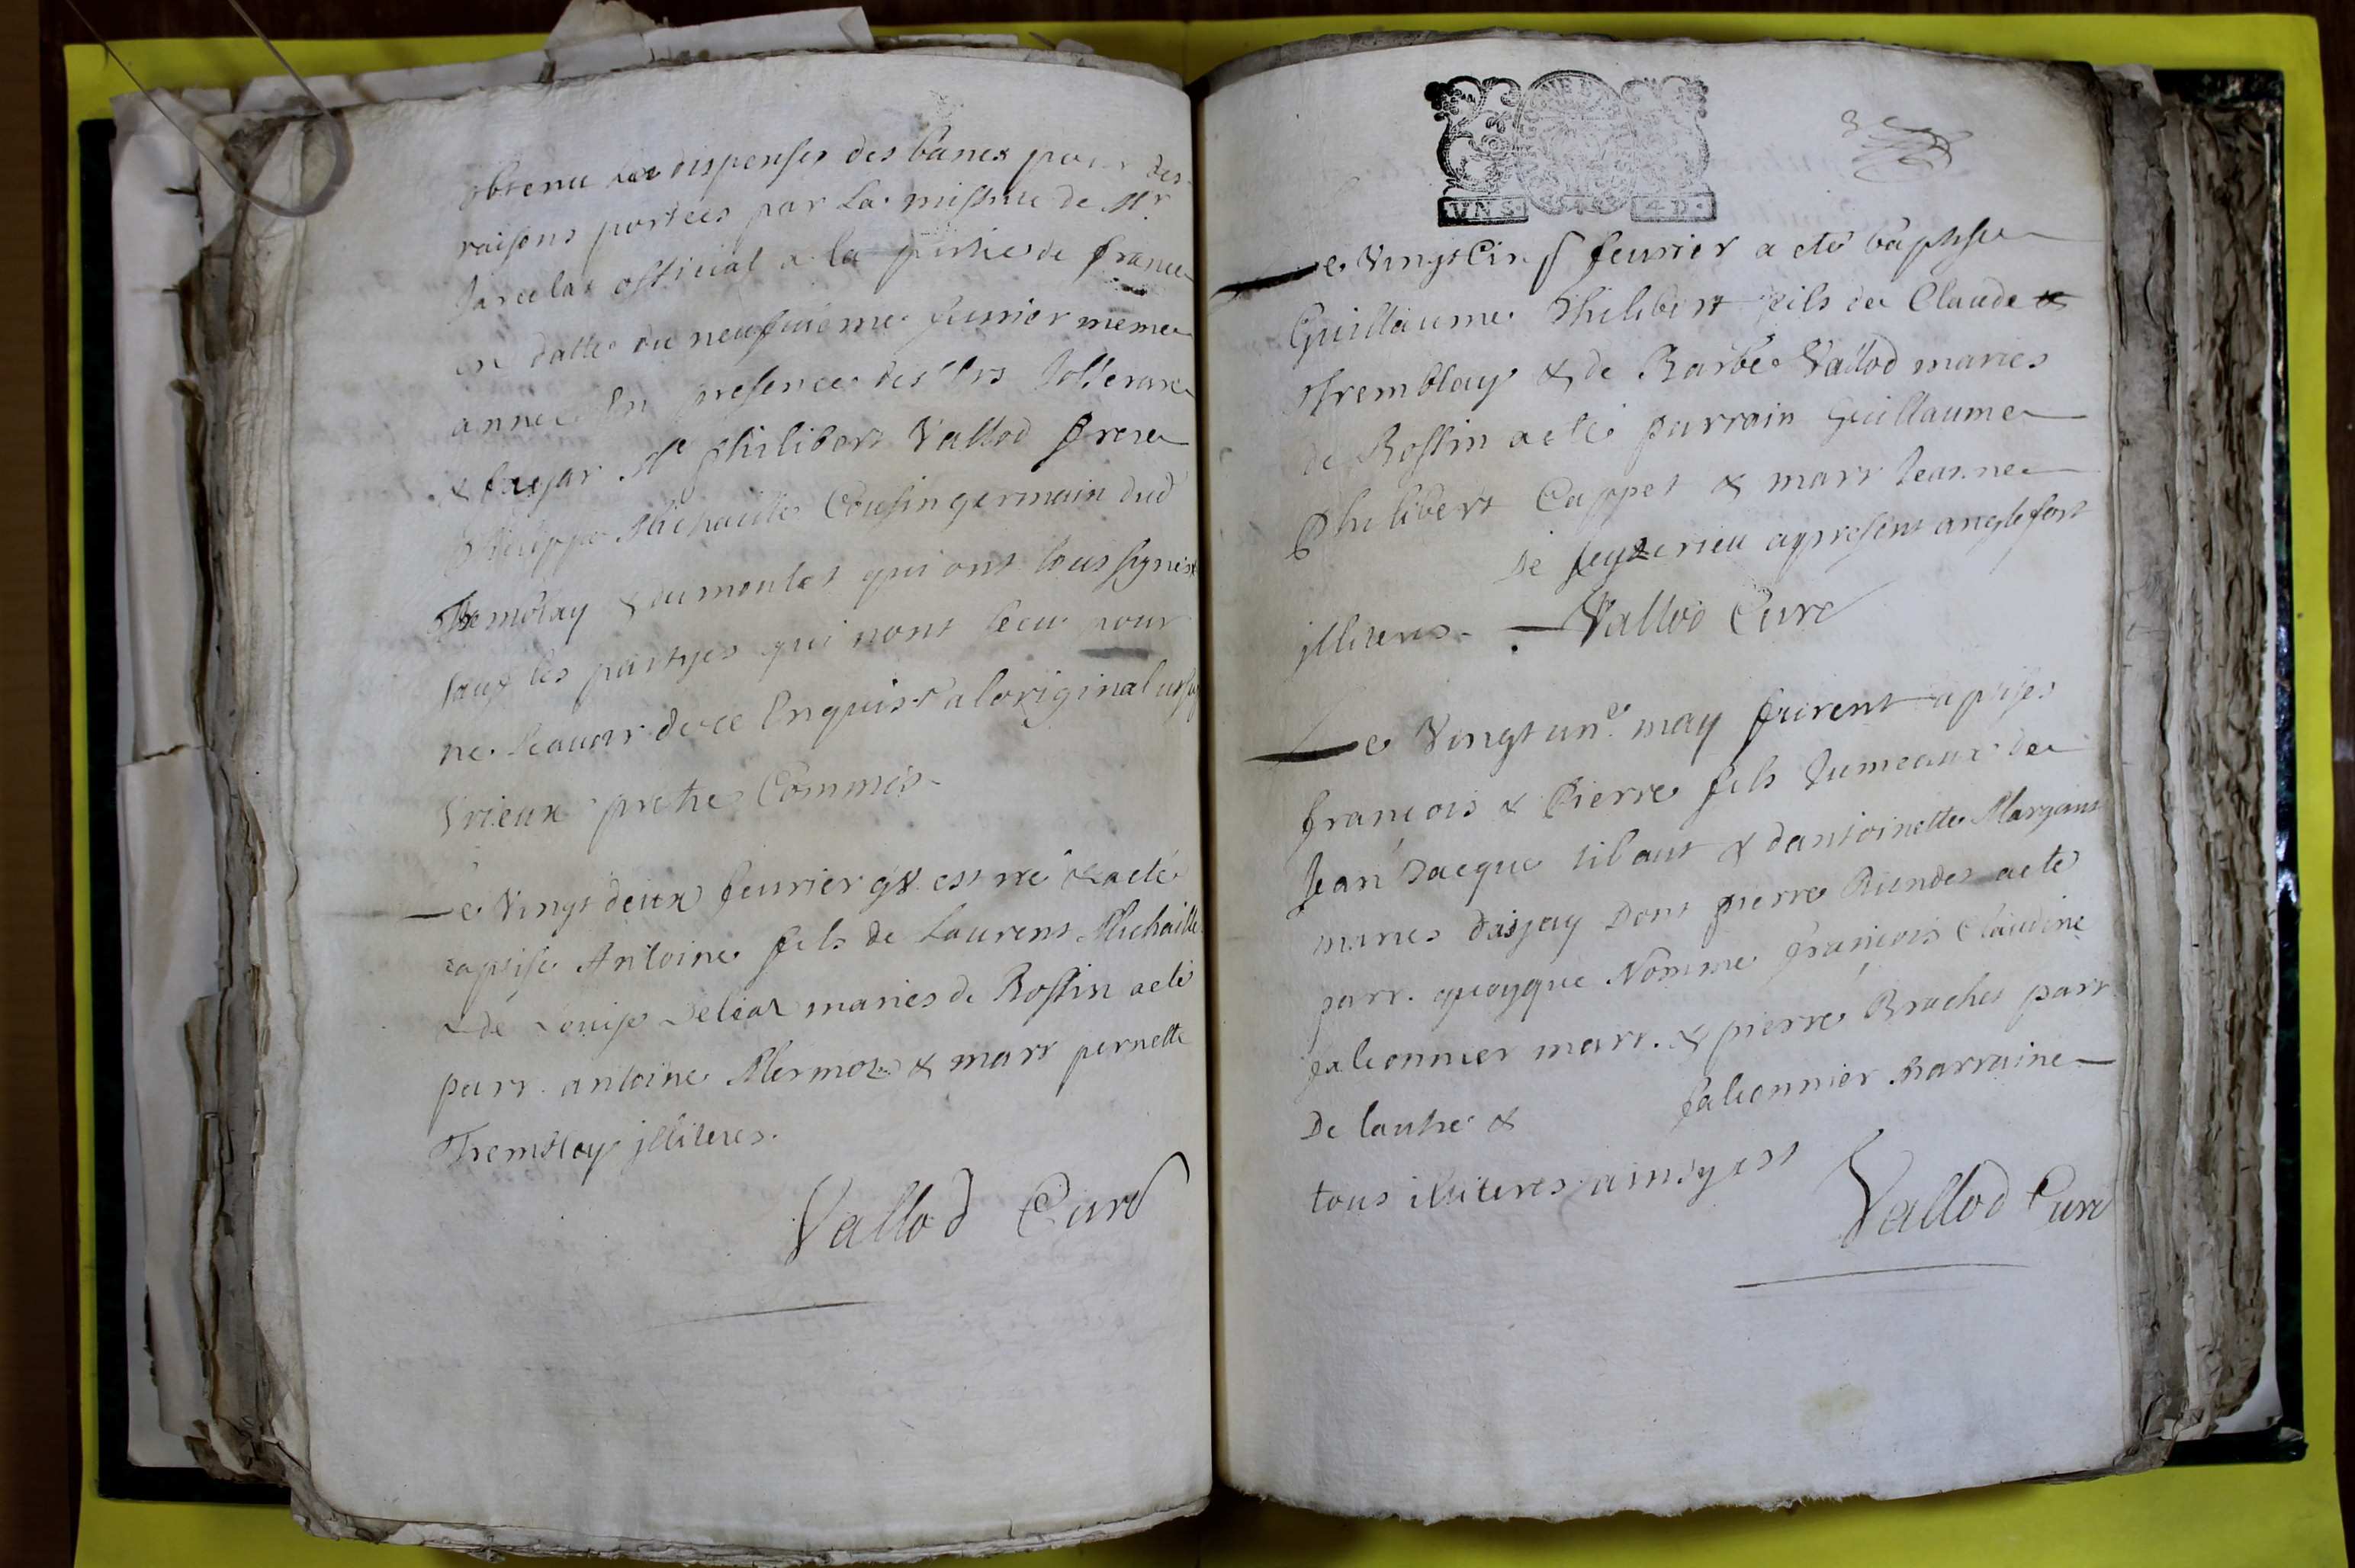 obtenu les dispenses des banex pour des
raisons portées par La missive de Mr
Jarcelat official a la partie de france
en datte du neufvieme feurier meme
année En presence des Srs
& Me philibert Vallod frere
philippe Michaille Cousin germain dud
Tremblay & dumoulet qui ont tous signes
sauf les partyes qui nont sceu pour
ne sçauoir de ce Enquis a loriginal
Vrieux pretre Commis
Le Vingt deux feurier est né & a eté
baptise Antoine fils de Laurent Michaille
& de Louise maries de Rossin a eté
parr. antoine Mermoz & marr pernette
Tremblay jlliteres.
Vallod Curé
VN S. 4 D.
Le Vingt Cinq feurier a eté baptise
Guillaume Philibert fils de Claude
Tremblay & de Barbe Vallod maries
de Rossin a eté parrain Guillaume
Philibert Cappet & marr Jeanne
de seyzerieu apresent anglefort
jlliteres. Vallod Curé
Le Vingt un e may furent baptises
françois & Pierre fils Jumeaux de
Jean Jacque tibaut & dantoinette
maries Dont pierre a eté
parr. quoyque Nomme françois Claudine
falconnier marr. & pierre Brachet parr
De lautre & falconnier Marraine
tous illiteres ainsy est
Vallod Curé